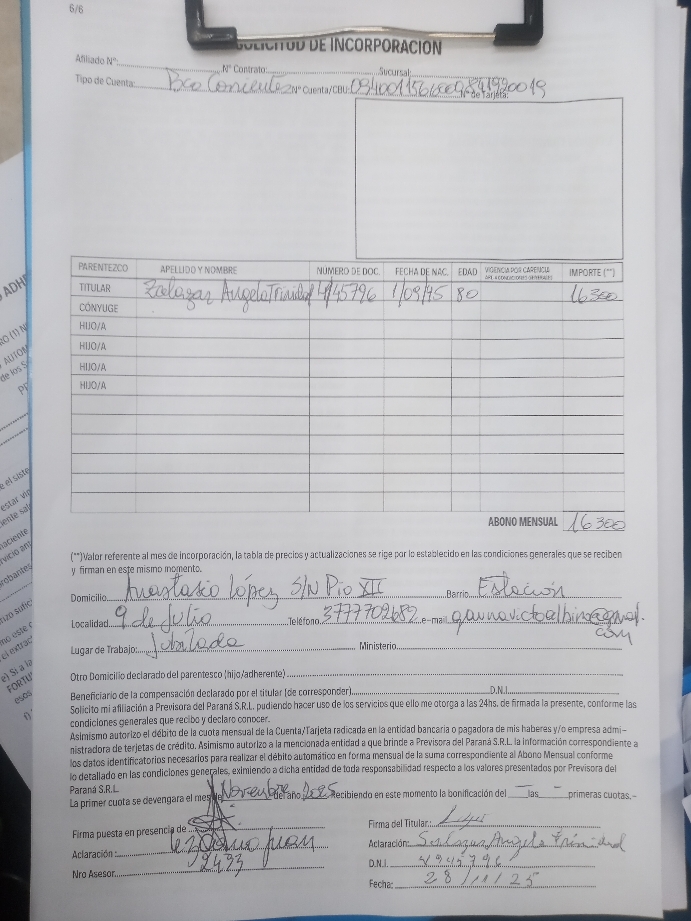 6/6
SOLICITUD DE INCORPORACION
Afiliado Nº: Nº Contrato: Sucursal:
Tipo de Cuenta: Bco Corrientes Nº Cuenta/CBU: Nº de Tarjeta:
PARENTEZCO APELLIDO Y NOMBRE NUMERO DE DOC. FECHA DE NAC. EDAD VIGENCIA POR CARENCIA IMPORTE (**)
TITULAR Zalazar Angela Trinidad 4945796 1/09/45 80 16300
CÓNYUGE
HIJO/A
HIJO/A
HIJO/A
HIJO/A
ABONO MENSUAL 16300
(**)Valor referente al mes de incorporación, la tabla de precios y actualizaciones se rige por lo establecido en las condiciones generales que se reciben
y firman en este mismo momento.
Domicilio Anastasio López S/N Pio XII Barrio: Estación
Localidad 9 de Julio Teléfono 3777702682 e-mail
Lugar de Trabajo: Jubilada Ministerio
Otro Domicilio declarado del parentesco (hijo/adherente)
Beneficiario de la compensación declarado por el titular (de corresponder) D.N.I
Solicito mi afiliación a Previsora del Paraná S.R.L. pudiendo hacer uso de los servicios que ello me otorga a las 24hs. de firmada la presente, conforme las
condiciones generales que recibo y declaro conocer.
Asimismo autorizo el débito de la cuota mensual de la Cuenta/Tarjeta radicada en la entidad bancaria o pagadora de mis haberes y/o empresa admi-
nistradora de terjetas de crédito. Asimismo autorizo a la mencionada entidad a que brinde a Previsora del Paraná S.R.L. la Información correspondiente a
los datos identificatorios necesarios para realizar el débito automático en forma mensual de la suma correspondiente al Abono Mensual conforme
lo detallado en las condiciones generales, eximiendo a dicha entidad de toda responsabilidad respecto a los valores presentados por Previsora del
Paraná S.R.L.
La primer cuota se devengara el mes de Noviembre del año 2025 Recibiendo en este momento la bonificación del — las — primeras cuotas.-
Firma puesta en presencia de Firma del Titular:
Aclaración: Juan Aclaración: Salazar Angela Trinidad
Nro Asesor 12433 D.N.I. 4945796
Fecha: 28/11/25